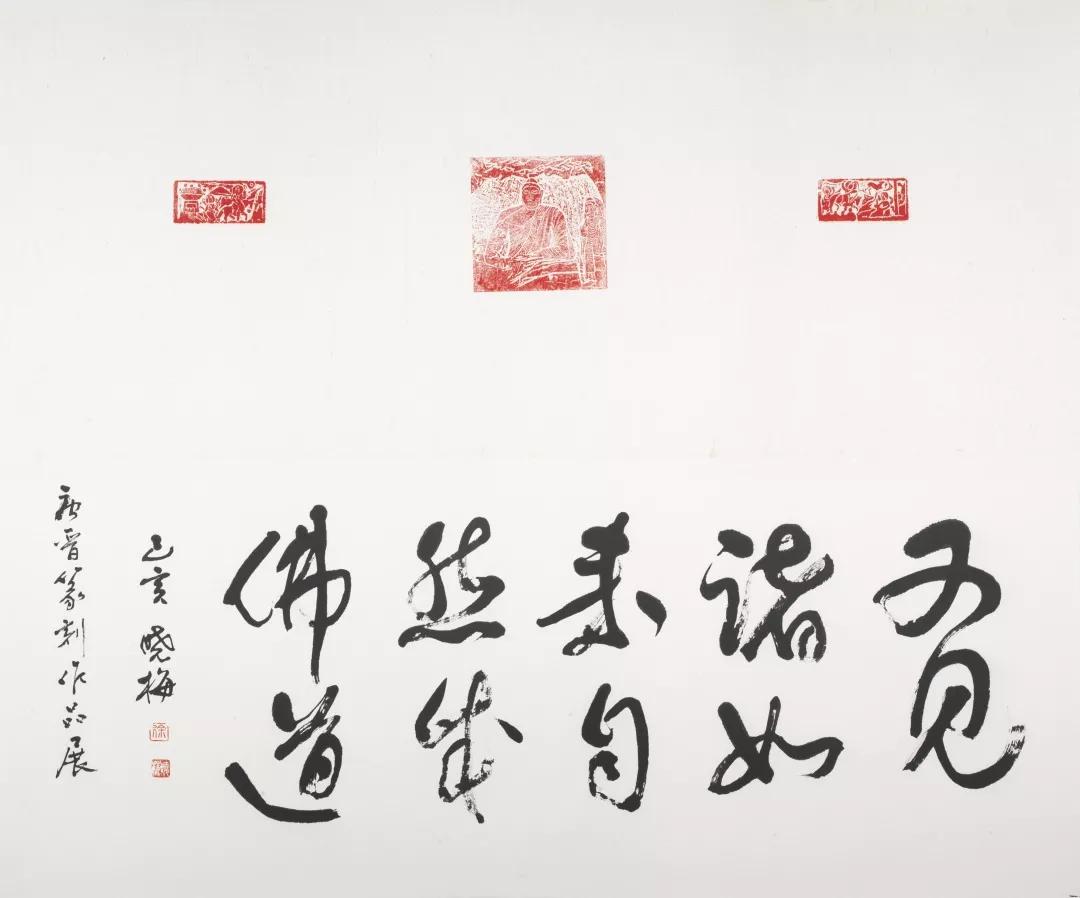 又见
诸如
来自
然成
佛道
己亥 晓梅
晋篆刻作品展